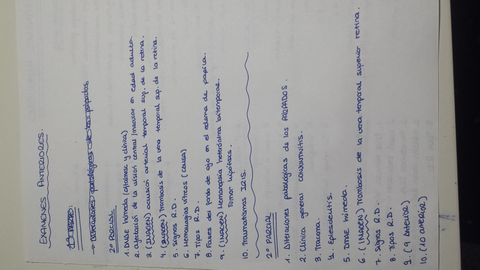 EXAMENES ANTERIORES
2º PARCIAL
1. DMAE húmeda (opciones y clínica)
2. afectación de la visión central (mayor en edad adulta.
3. (IMAGEN) oclusión arterial temporal sup. de la retina.
4. (IMAGEN) Trombosis de la vena temporal sup. de la retina.
5. Signos R.D.
6. Hemorragia vítrea (causa)
7. Tipos R.D.
8. Fases del fondo de ojo en el edema de papila.
9. (IMAGEN) Hemianopsia heterónima bitemporal.
Tumor hipófisis.
10. Traumatismo
2º PARCIAL
1. Alteraciones patológicas de los PÁRPADOS.
2. Clínica general conjuntivitis.
3. Trauma.
4. Epiescleritis.
5. DMAE
6. (IMAGEN) Trombosis de la vena temporal superior retina.
7. Signos R.D.
8. Tipos R.D.
9. (9 anterior)
10. (10 anterior)